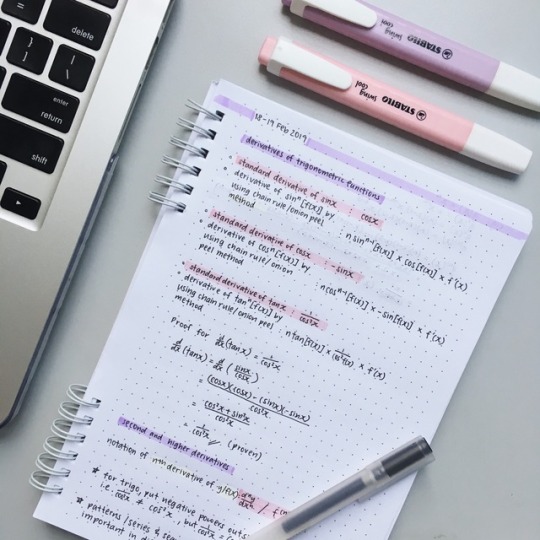 delete
enter
return
shift
STABILO swing cool
STABILO swing cool
18-19 Feb 2019
derivatives of trigonometric functions
• standard derivative of sinx : cosx
• derivative of sinⁿ[f(x)] by
using chain rule/onion peel : n sinⁿ⁻¹[f(x)] × cos[f(x)] × f'(x)
method
• standard derivative of cosx : -sinx
• derivative of cosⁿ[f(x)] by
using chain rule/onion : ncosⁿ⁻¹[f(x)] × -sin[f(x)] × f'(x)
peel method
• standard derivative of tanx : 1/cos²x
• derivative of tanⁿ[f(x)] by
using chain rule/onion peel : n tan[f(x)] × 1/cos²f(x) × f'(x)
method
Proof for d/dx (tanx) = 1/cos²x
d/dx (tanx) = d/dx (sinx/cosx)
= (cosx)(cosx) - (sinx)(-sinx)/cos²x
= cos²x + sin²x/cos²x
= 1/cos²x // (proven)
second and higher derivatives
notation of nth derivative of g(x): dⁿy/dxⁿ / f
* for trigo, put negative powers outs
i.e. 1/cos²x ≠ cos⁻²x, but
* patterns / series &
important in